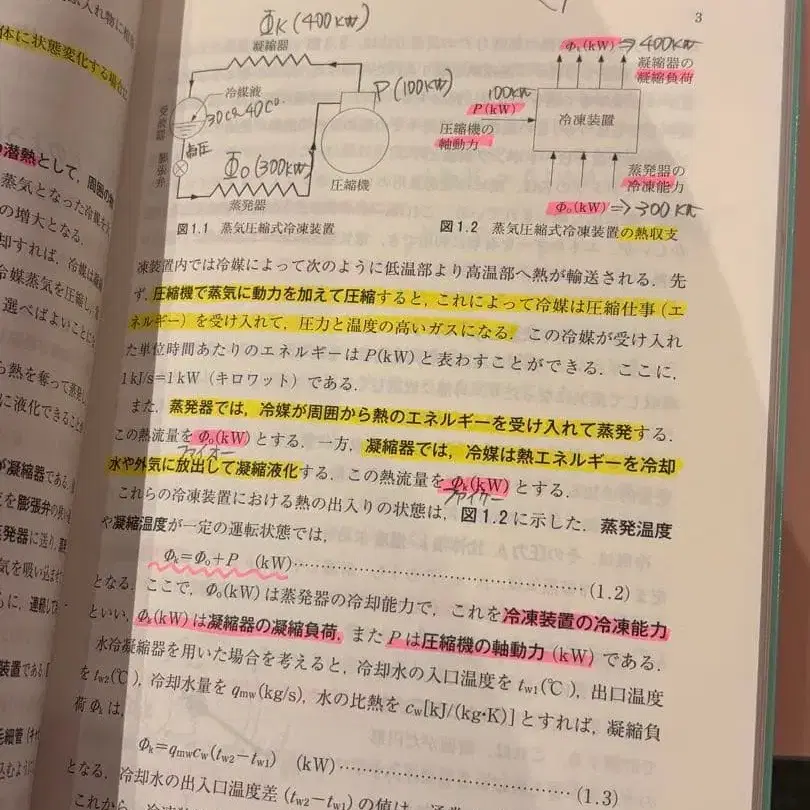 3
ΦK(400kW)
凝縮器
冷媒液
30℃~40℃
受液器
高圧
膨張弁
P(100kW)
Φo(300kW)
圧縮機
蒸発器
図1.1 蒸気圧縮式冷凍装置
Φk(kW)⇒400kW
凝縮器の
凝縮負荷
100kW
P(kW)
圧縮機の
軸動力
冷凍装置
蒸発器の
冷凍能力
Φo(kW)⇒300kW
図1.2 蒸気圧縮式冷凍装置の熱収支
凍装置内では冷媒によって次のように低温部より高温部へ熱が輸送される.先
ず,圧縮機で蒸気に動力を加えて圧縮すると,これによって冷媒は圧縮仕事(エ
ネルギー)を受け入れて,圧力と温度の高いガスになる.この冷媒が受け入れ
た単位時間あたりのエネルギーはP(kW)と表わすことができる.ここに,
1kJ/s=1kW(キロワット)である.
また,蒸発器では,冷媒が周囲から熱のエネルギーを受け入れて蒸発する.
この熱流量をΦo(kW)とする.一方,凝縮器では,冷媒は熱エネルギーを冷却
ファイオー
水や外気に放出して凝縮液化する.この熱流量をΦk(kW)とする.
ファイケー
これらの冷凍装置における熱の出入りの状態は,図1.2に示した.蒸発温度
や凝縮温度が一定の運転状態では,
Φk=Φo+P (kW)……(1.2)
となる.ここで,Φo(kW)は蒸発器の冷却能力で,これを冷凍装置の冷凍能力
といい,Φk(kW)は凝縮器の凝縮負荷,またPは圧縮機の軸動力(kW)である.
水冷凝縮器を用いた場合を考えると,冷却水の入口温度をtw1(℃),出口温度
をtw2(℃),冷却水量をqmw(kg/s),水の比熱をcw[kJ/(kg・K)]とすれば,凝縮負
荷Φkは,
Φk=qmwcw(tw2−tw1) (kW)……(1.3)
となる.冷却水の出入口温度差(tw2−tw1)の値は,通常
体に状態変化する場合に
の潜熱として,周囲の
蒸気となった冷媒を
の増大となる.
却すれば,冷媒は
冷媒蒸気を圧縮し,
選べばよいことに
ら熱を奪って蒸発し
に液化できること
が凝縮器である.
を膨張弁の
発器に送り,
気を吸い込ませ
に,連続して
装置である
毛細管(キャ
込むように